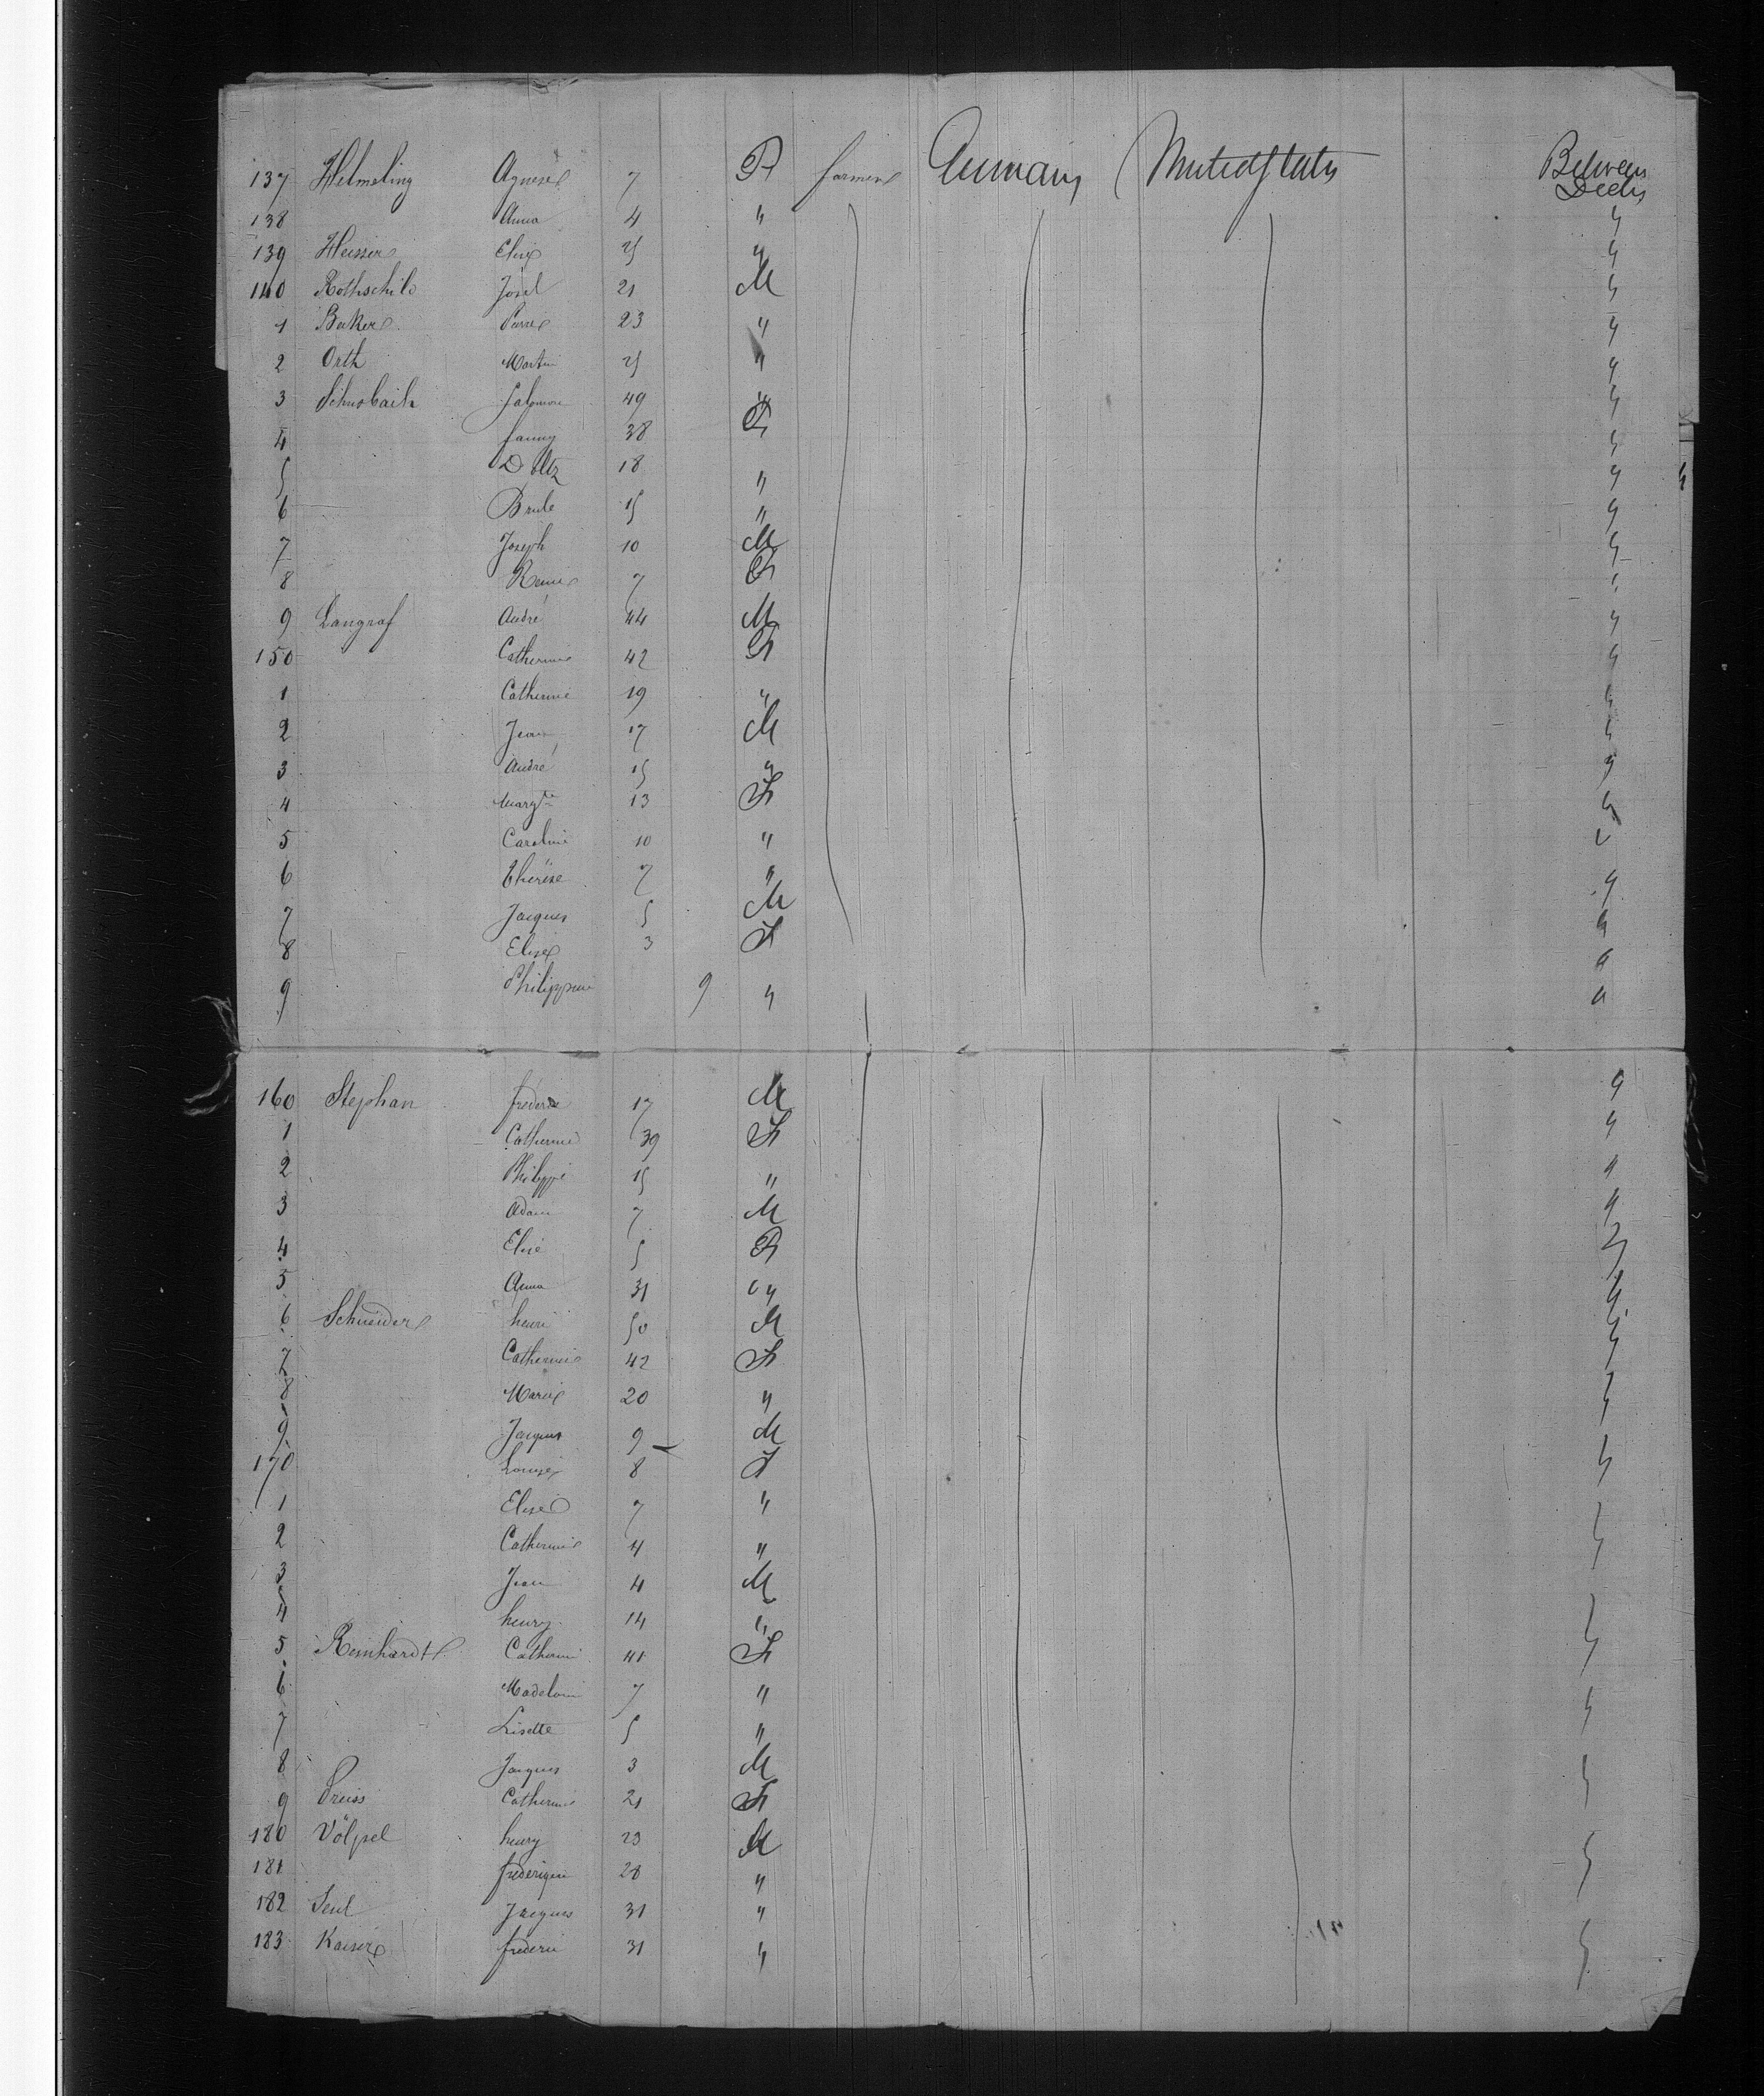 137 Helmeling Agnese 7 F farmer Germany United States Between Decks
138 Anna 4 " "
139 Heisser Elise 25 " "
140 Rothschild Josel 21 M "
1 Beker Pierre 23 " "
2 Orth Martin 25 " "
3 Schusbach Salomon 49 " "
4 fanny 38 F "
5 18 " "
6 Brule 15 " "
7 Joseph 10 M "
8 7 F "
9 Langraf André 44 M "
150 Catherine 42 F "
1 Catherine 19 " "
2 Jean 17 M "
3 André 15 " "
4 Margte 13 F "
5 Caroline 10 " "
6 Thérèse 7 " "
7 Jacques 5 M "
8 Elise 3 F "
9 Philippine 9 " "
160 Stephan frederic 17 M "
1 Catherine 39 F "
2 Philippe 15 " "
3 Adam 7 M "
4 Elise 5 F "
5 Anna 31 " "
6 Schneider henri 50 M "
7 Catherine 42 F "
8 Marie 20 " "
9 Jacques 9 M
170 Louise 8 F "
1 Elise 7 "
2 Catherine 4 " "
3 Jean 4 M
4 henry 14 "
5 Reinhardt Catherine 41 F "
6 Madelaine 7 " "
7 Lisette 5 "
8 Jacques 3 M "
9 Preiss Catherine 21 F
180 Völpel henry 23 M "
181 frederique 28 "
182 Seul Jacques 31 "
183 Kaiser frederic 31 " "